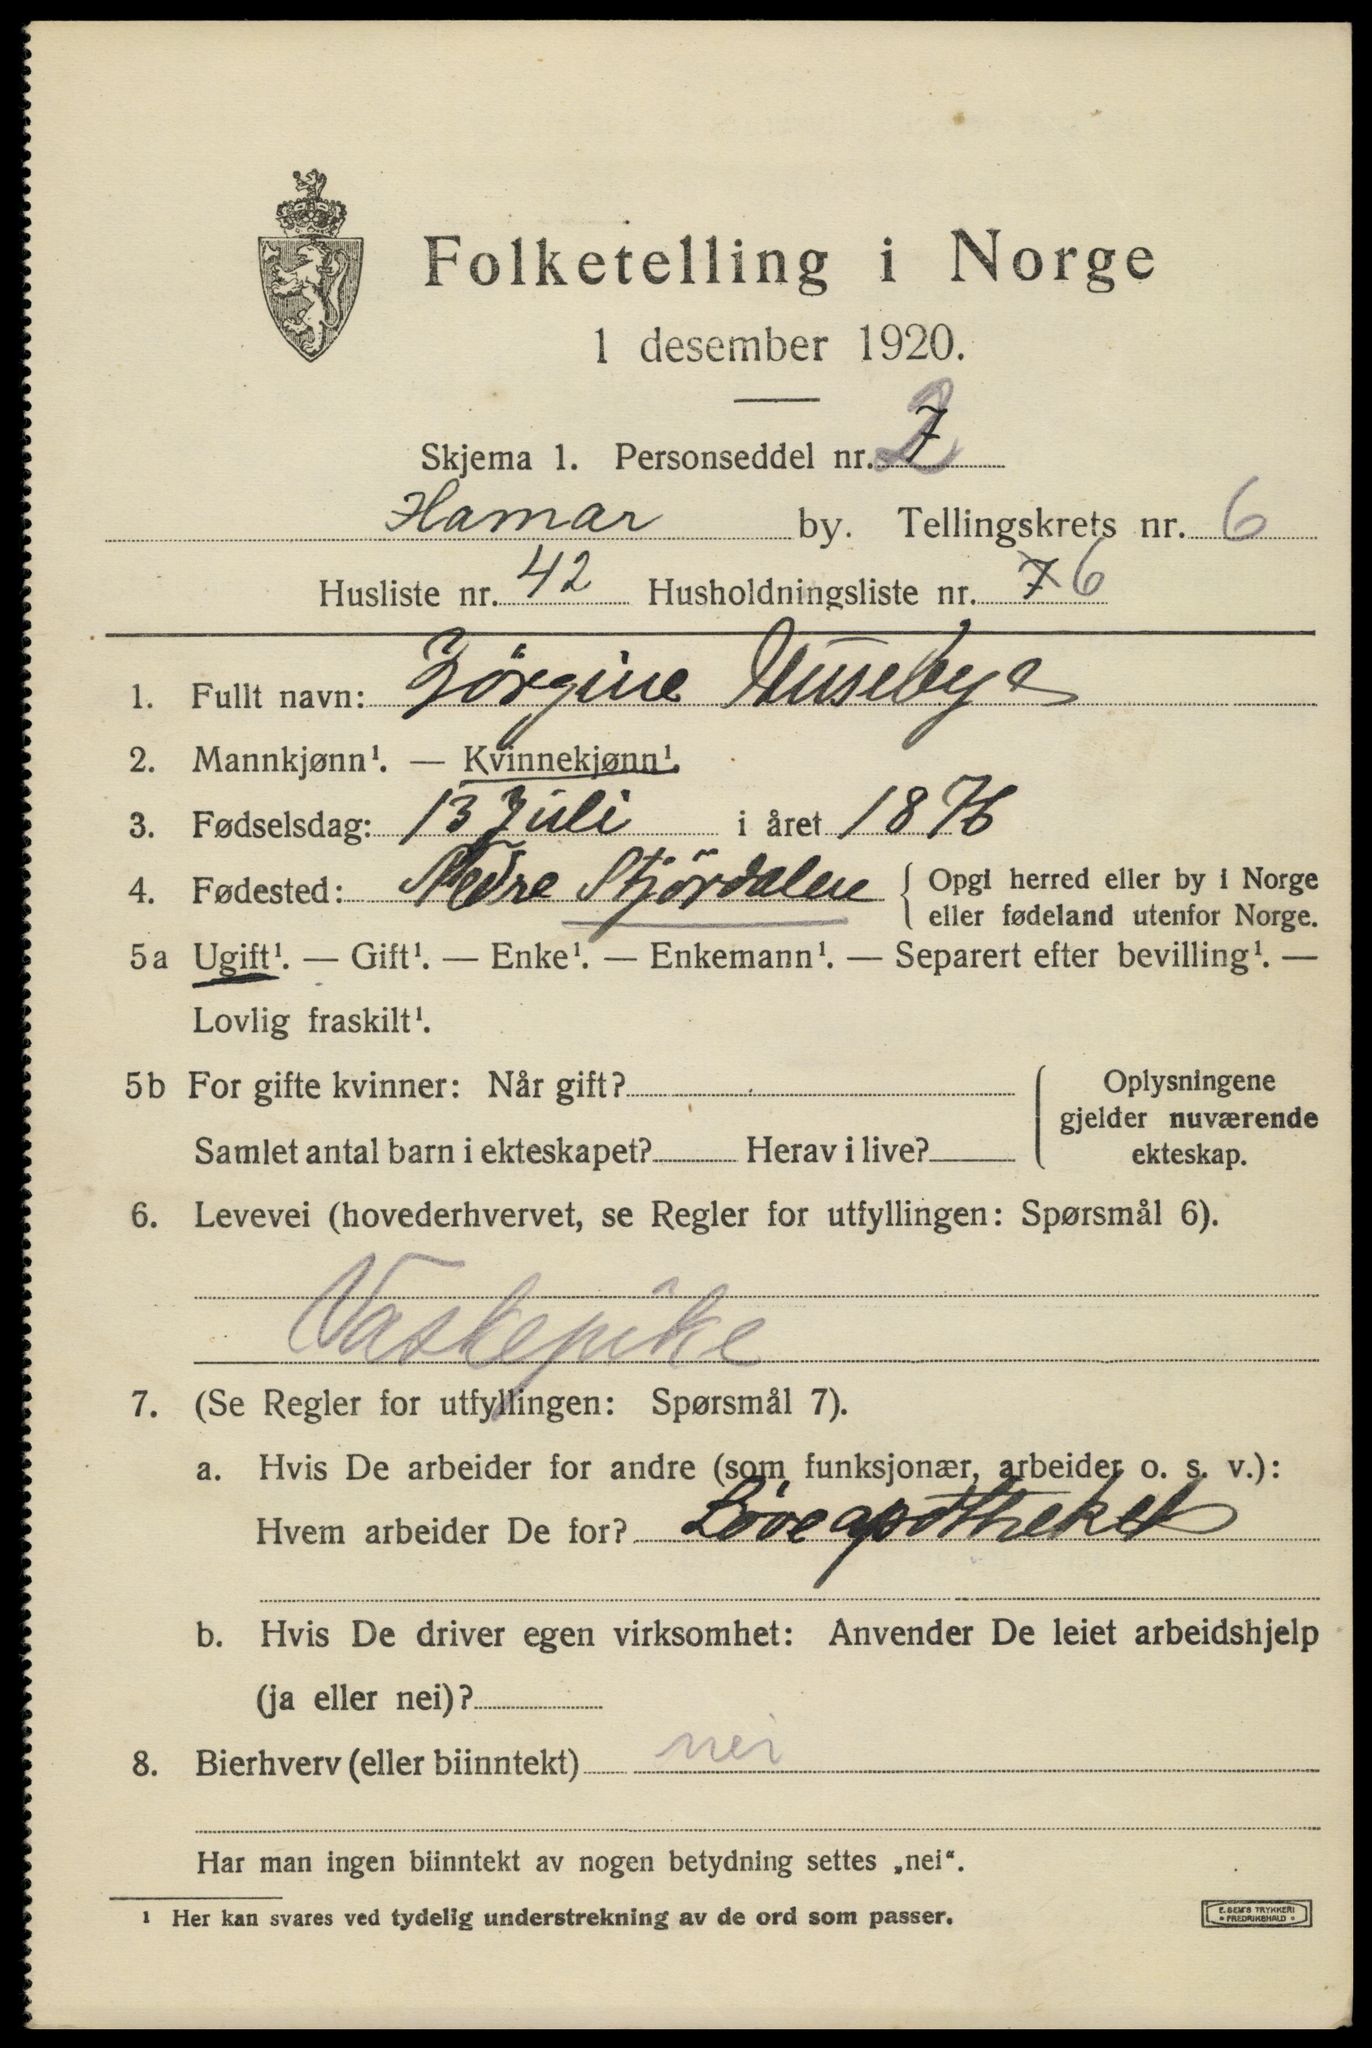 Folketelling i Norge
1 desember 1920.
Skjema 1. Personseddel nr. 2
Hamar by. Tellingskrets nr. 6
Husliste nr. 42 Husholdningsliste nr. 7 6
1. Fullt navn: Jörgine Husebye
2. Mannkjønn¹. — Kvinnekjønn¹.
3. Fødselsdag: 13 Juli i året 1876
4. Fødested: Nedre Stjördalen { Opgi herred eller by i Norge
eller fødeland utenfor Norge.
5a Ugift¹. — Gift¹. — Enke¹. — Enkemann¹. — Separert efter bevilling¹. —
Lovlig fraskilt¹.
5b For gifte kvinner: Når gift? Oplysningene
gjelder nuværende
Samlet antal barn i ekteskapet? Herav i live? ekteskap.
6. Levevei (hovederhvervet, se Regler for utfyllingen: Spørsmål 6).
Vaskepike
7. (Se Regler for utfyllingen: Spørsmål 7).
a. Hvis De arbeider for andre (som funksjonær, arbeider o. s. v.):
Hvem arbeider De for? Löveapotheket
b. Hvis De driver egen virksomhet: Anvender De leiet arbeidshjelp
(ja eller nei)?
8. Bierhverv (eller biinntekt) nei
Har man ingen biinntekt av nogen betydning settes „nei“.
¹ Her kan svares ved tydelig understrekning av de ord som passer.
E. SEM'S TRYKKERI
FREDRIKSHALD